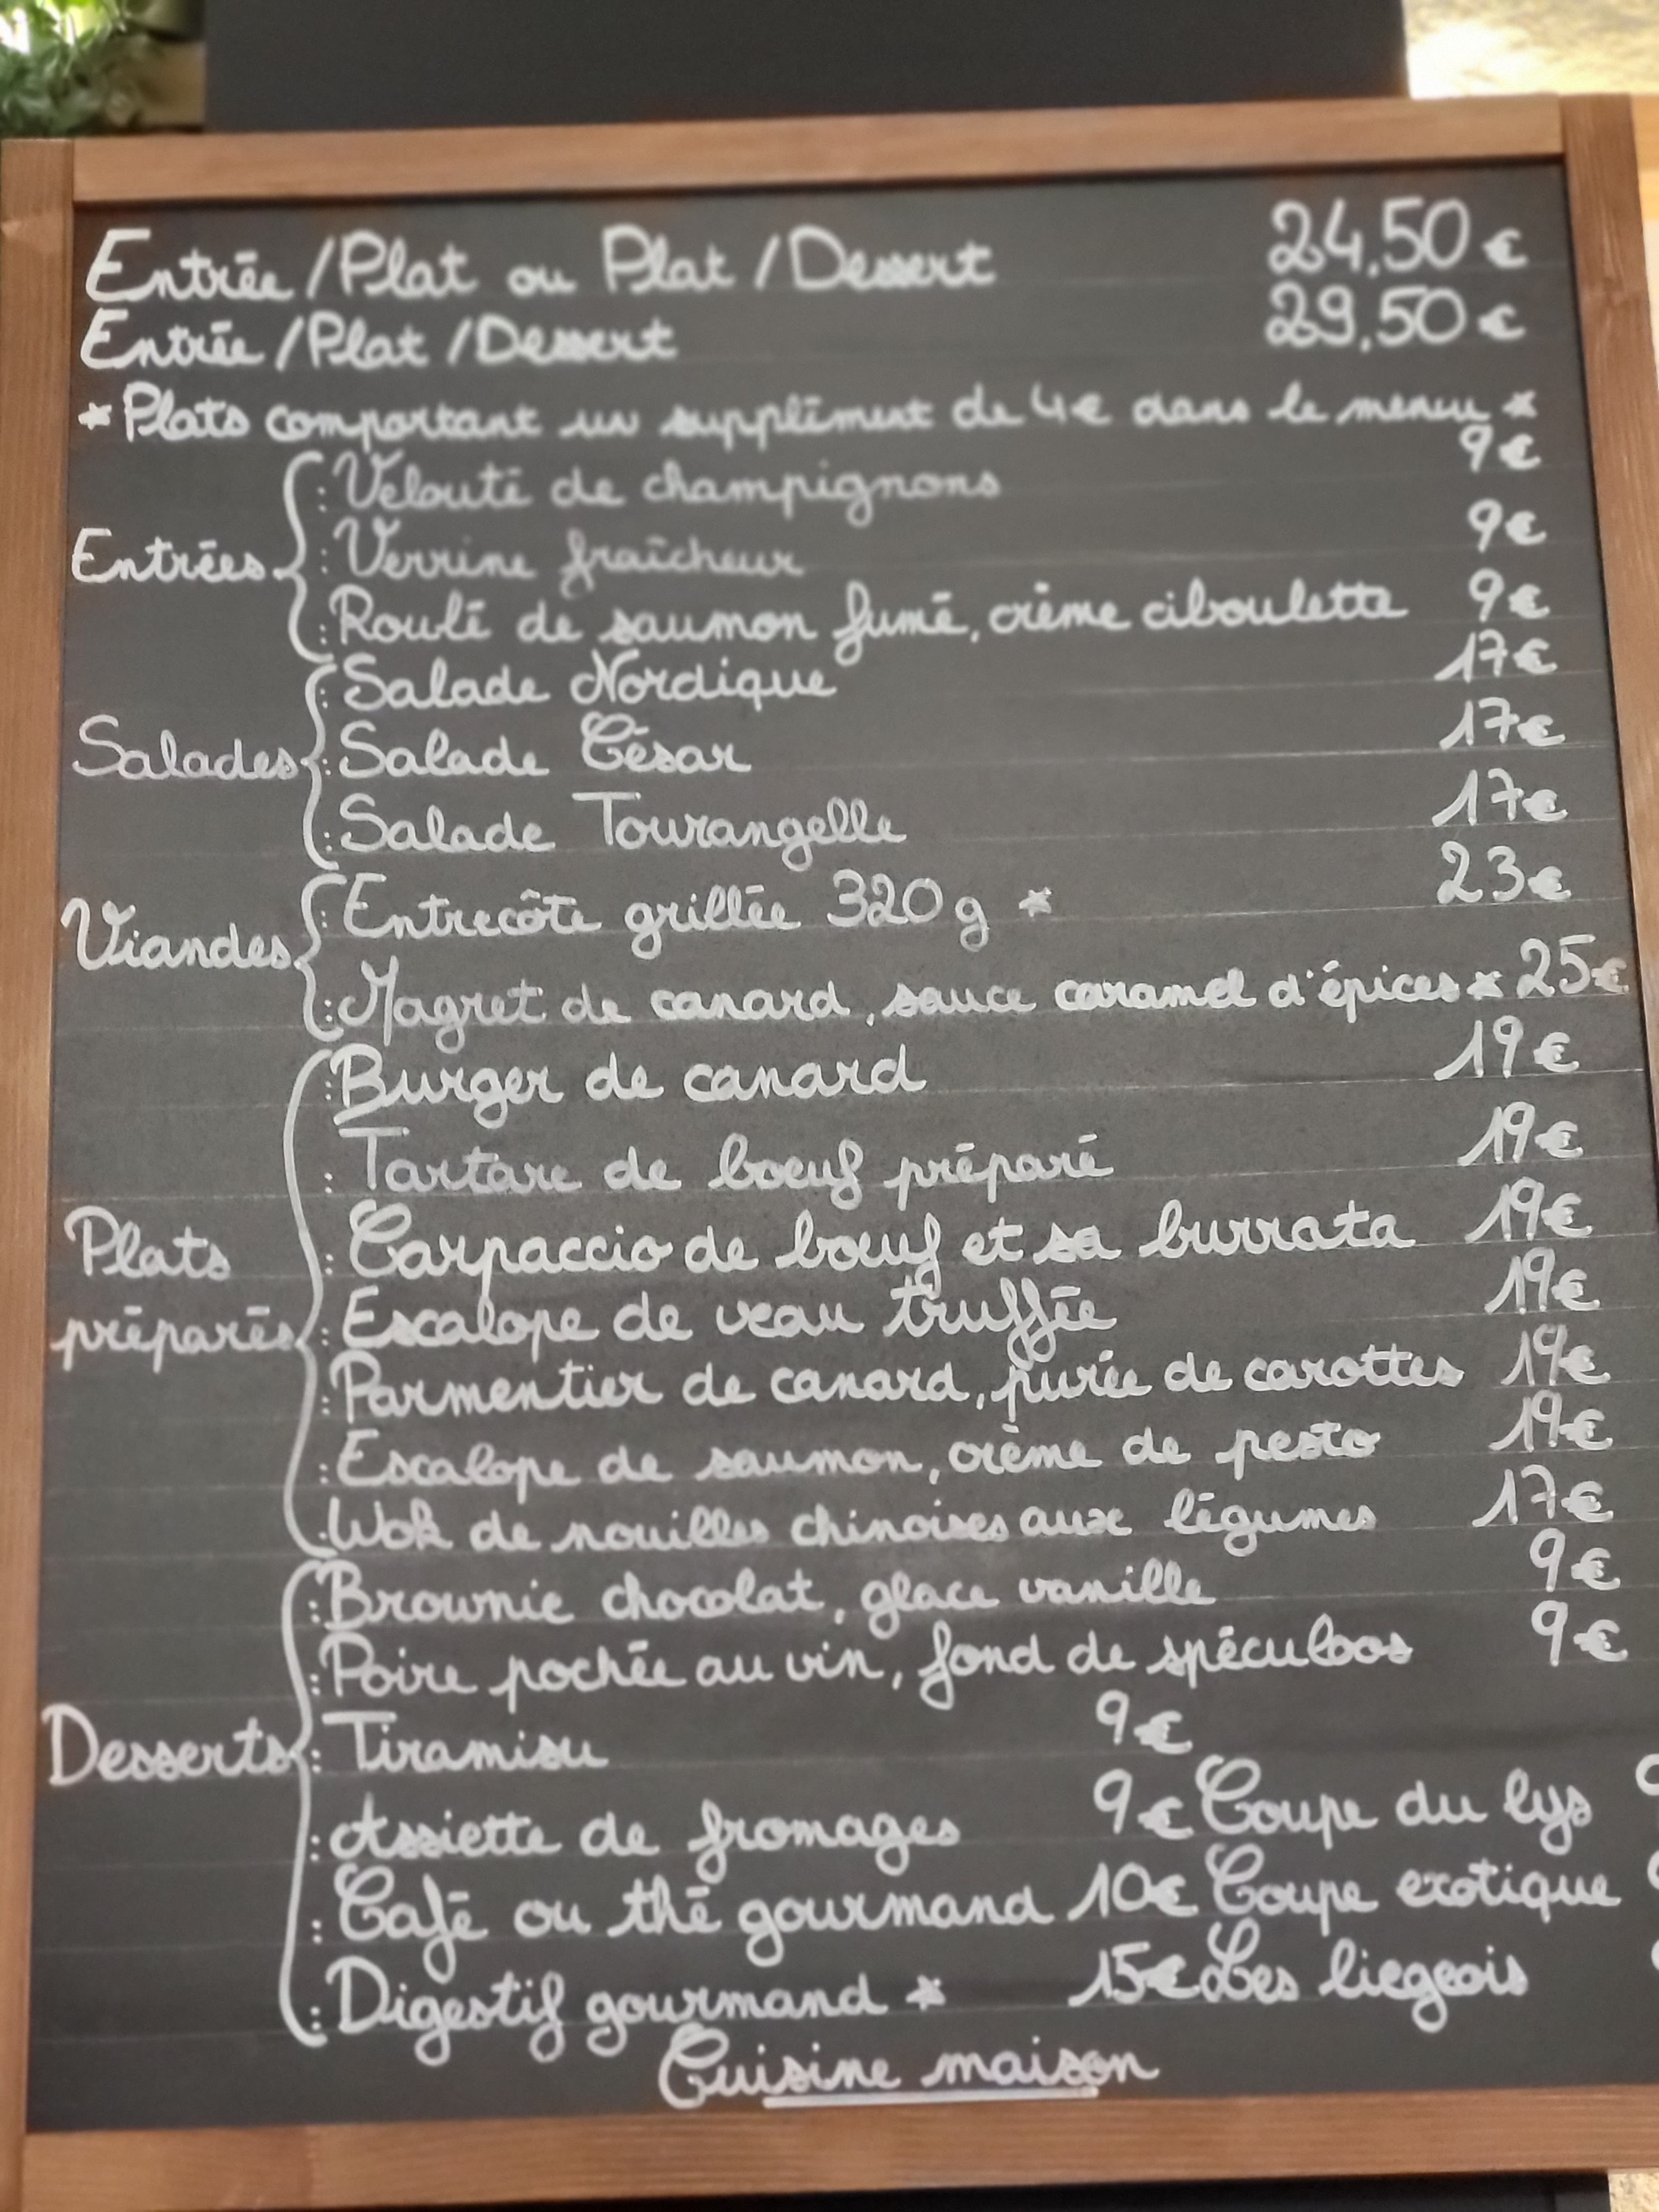 Entrée /Plat ou Plat /Dessert 24,50 €
Entrée /Plat /Dessert 29,50 €
* Plats comportant un supplément de 4€ dans le menu *
Entrées
: Velouté de champignons 9€
: Verrine fraîcheur 9€
: Roulé de saumon fumé, crème ciboulette 9€
Salades
: Salade Nordique 17€
: Salade César 17€
: Salade Tourangelle 17€
Viandes
: Entrecôte grillée 320g * 23€
: Magret de canard, sauce caramel d'épices * 25€
Plats préparés
: Burger de canard 19€
: Tartare de boeuf préparé 19€
: Carpaccio de boeuf et sa burrata 19€
: Escalope de veau truffée 19€
: Parmentier de canard, purée de carottes 19€
: Escalope de saumon, crème de pesto 19€
: Wok de nouilles chinoises aux légumes 17€
Desserts
: Brownie chocolat, glace vanille 9€
: Poire pochée au vin, fond de spéculoos 9€
: Tiramisu 9€
: Assiette de fromages 9€ Coupe du lys
: Café ou thé gourmand 10€ Coupe exotique
: Digestif gourmand * 15€ Les liegeois
Cuisine maison